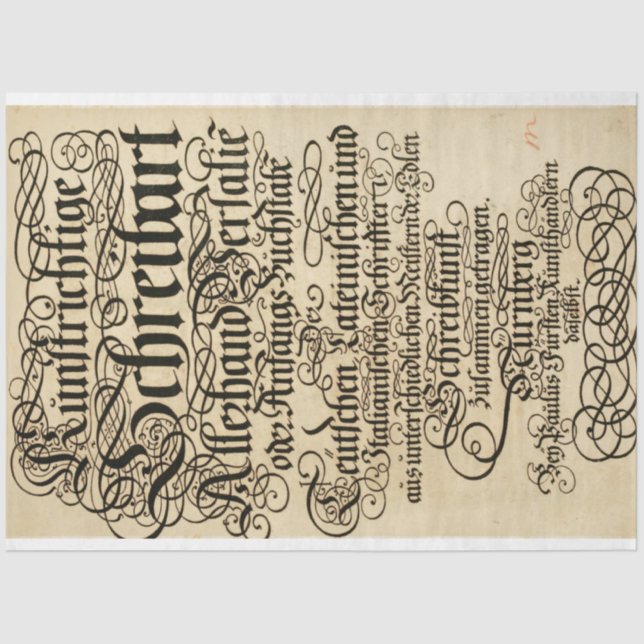 Kunstrichtige
Schreibart
Allerhand Versalie
oder AnfangsBuchstabe
Der
Teütschen Lateinischen und
Italianischen Schrifften
aus unterschiedlichen Meistern der Edlen
Schreibkunst
zusammen getragen.
Nürnberg
Bey Paulus Fürsten Kunsthändlern
daselbst.